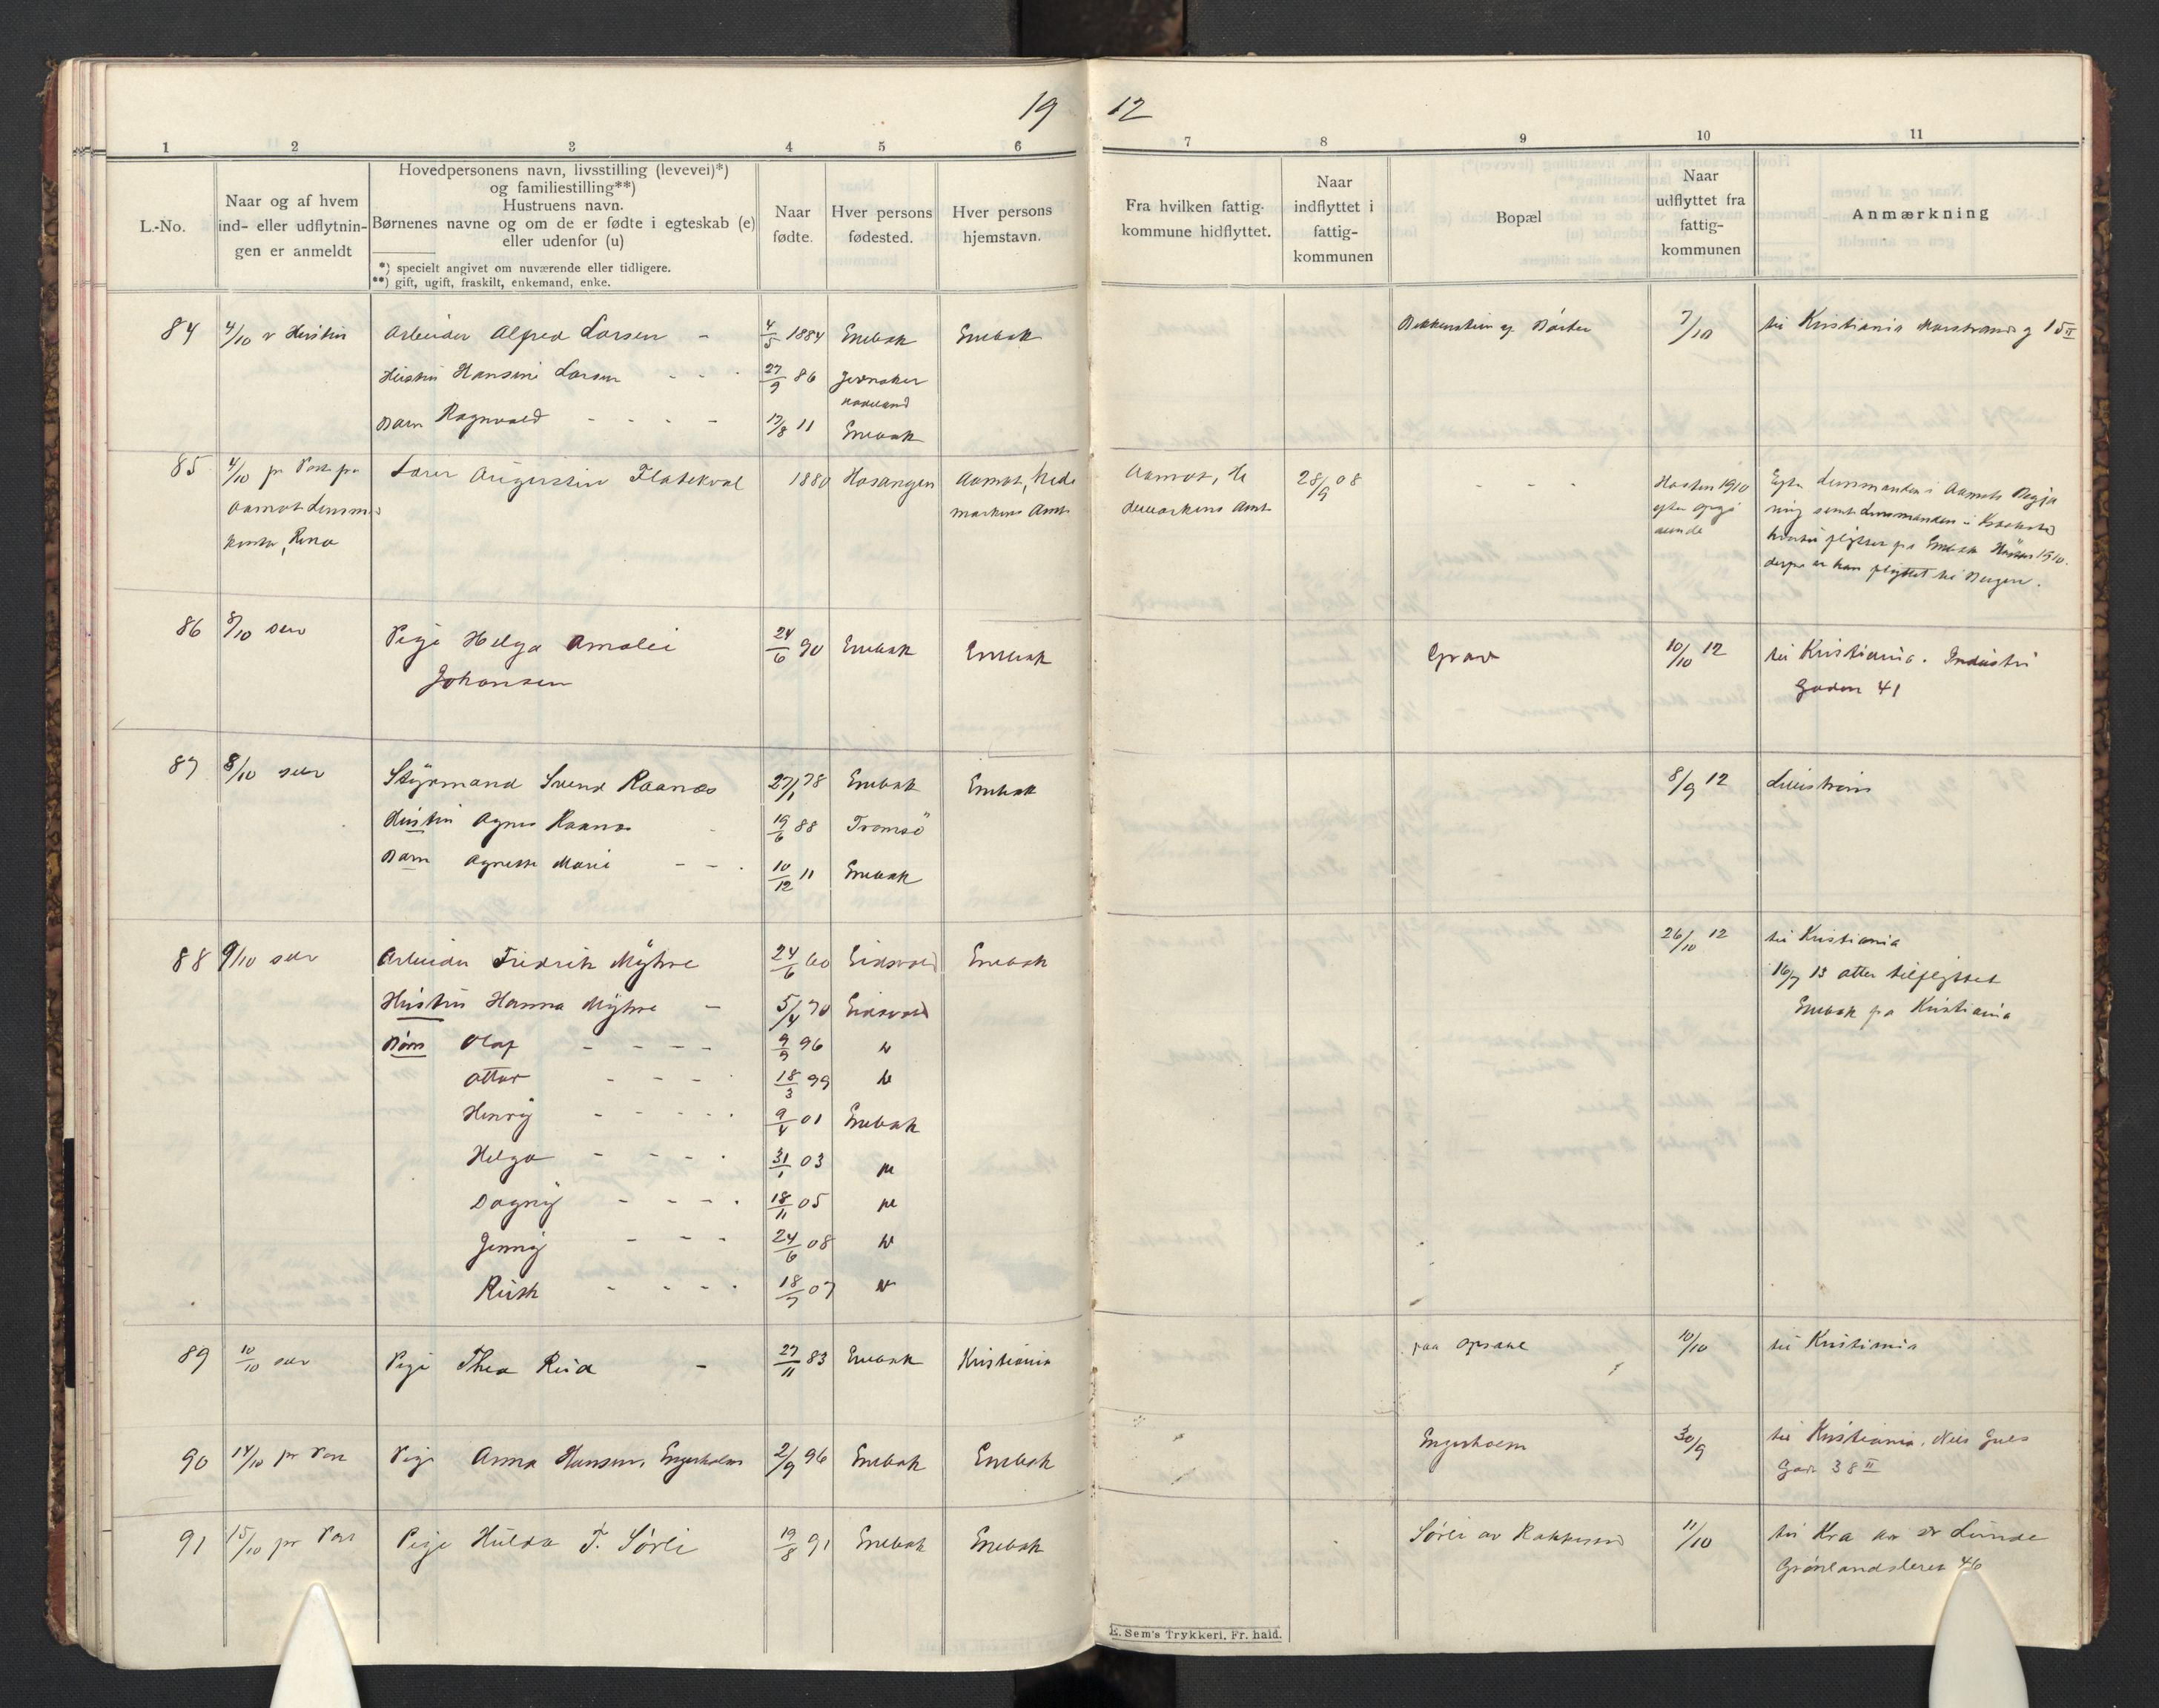 19 12
1 2 3 4 5 6 7 8 9 10 11
L.-No.
Naar og af hvem
ind- eller udflytnin-
gen er anmeldt
Hovedpersonens navn, livsstilling (levevei)*)
og familiestilling**)
Hustruens navn.
Børnenes navne og om de er fødte i egteskab (e)
eller udenfor (u)
*) specielt angivet om nuværende eller tidligere.
**) gift, ugift, fraskilt, enkemand, enke.
Naar
fødte.
Hver persons
fødested.
Hver persons
hjemstavn.
Fra hvilken fattig-
kommune hidflyttet.
Naar
indflyttet i
fattig-
kommunen
Bopæl
Naar
udflyttet fra
fattig-
kommunen
Anmærkning
84 4/10 Arbeider Alfred Larsen - 4/5 1884 Enebak Enebak 7/10 til Kristiania 15 II
Hustru Hansine Larsen - - 27/9 86 Jevnaker
Hadeland
Barn Ragnvald - - - - 17/8 11 Enebak
85 4/10 pr Post fra Lærer Augustin Flatekval 1880 Hosanger Aamot, Hede Aamot, He 28/9 08 - - - Høsten 1910 Efter Lensmanden i Aamots
Aamot Lensm. markens Amt demarkens Amt efter samt Lensmanden i
kontor, Rena flyttet fra Enebak Høsten 1910.
er han flyttet til Bergen.
86 8/10 selv Pige Helga Amalie 24/6 90 Enebak Enebak Grav 10/10 12 til Kristiania. Industri
Johansen Gaden 41
87 8/10 selv Styrmand Svend Raanæs 27/1 78 Enebak Enebak 8/9 12 Lillestrøm
Hustru Agnes Raanæs - 19/6 88 Tromsö
Barn Agnethe Marie - - 10/12 11 Enebak
88 9/10 selv Arbeider Fredrik Myhre 24/6 60 Eidsvold Enebak 26/10 12 til Kristiania
Hustru Hanna Myhre - 5/4 70 Eidsvold 16/7 13 atter tilflyttet
Børn Olaf - - - - 9/9 96 Enebak fra Kristiania
Ottar - - - 18/3 99
Henry - - - - 9/4 01 Enebak
Helga - - - 31/1 03
Dagny - - - - 18/11 05
Jenny - - - 24/6 08
Ruth - - - - 18/7 07
89 10/10 selv Pige Thea Rud - 27/11 83 Enebak Kristiania paa Opsahl 10/10 til Kristiania
90 14/10 pr Post Pige Anna Hansen, Engerholm 2/9 96 Enebak Enebak Engerholm 30/9 til Kristiania, Niels Juels
Gade 38 II
91 15/10 pr Post Pige Hulda T. Sørli 19/8 91 Enebak Enebak Sørli av 11/10 til Kra Lunde
Grønlandsleret 46
E. Sem's Trykkeri, Fr. hald.